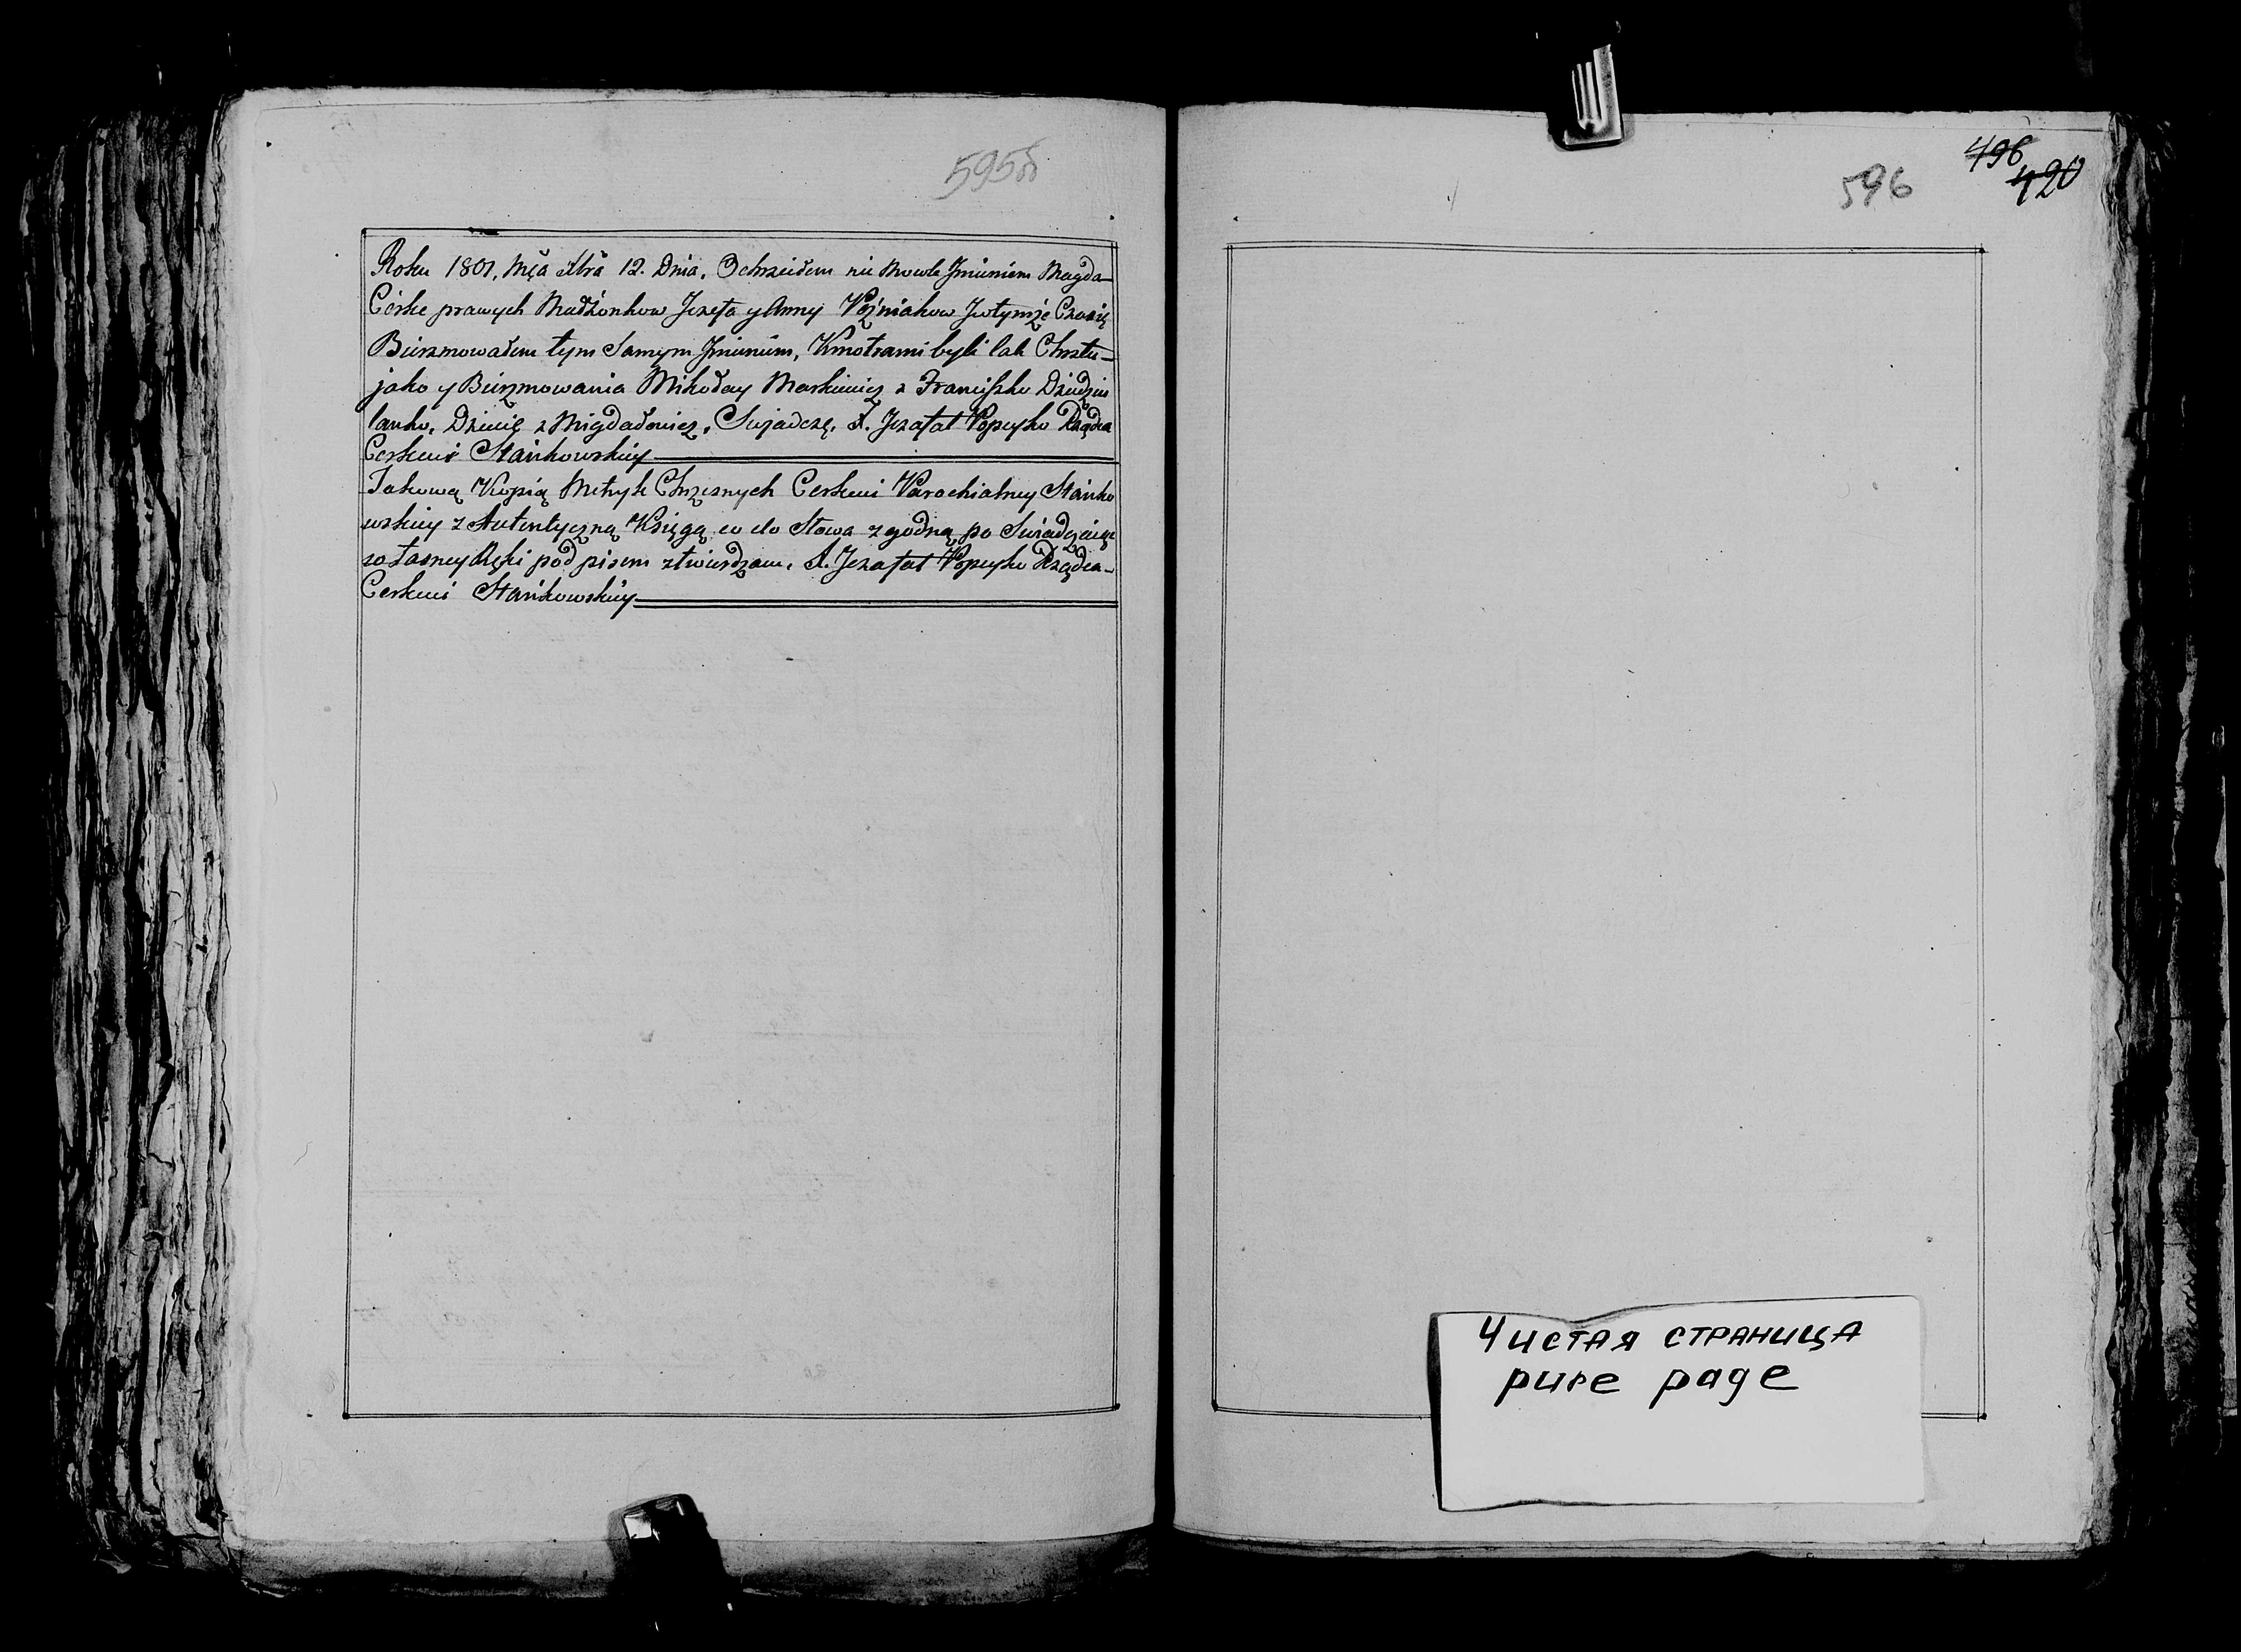 595об
Roku 1801, Mca Xbra 12. Dnia. Ochrzciłem nie Mowle Jmieniem Magda
Córke prawych Małżonkow Jozefa y Anny Woźniakow Jwtymże Czasie
Bierzmowałem tym Samym Jmieniem, Kmotrami byli tak Chrztu
jako y Bierzmowania Mikołay Markiewicz z Franciszko
Dziecię z Migdałowicz. Swjadczę. X. Jozafat Rządca
Cerkwi Stańkowskiey
Takową Kopią Metryk Chrzesnych Cerkwi Parochialney Stańko
wskiey z Autentyczną Księgą co do Słowa zgodną po Swiadczeniu
własney Ręki podpisem ztwierdzam. X. Jozafat Rządca
Cerkwi Stańkowskiey
496
420
596
Чистая страница
pure page